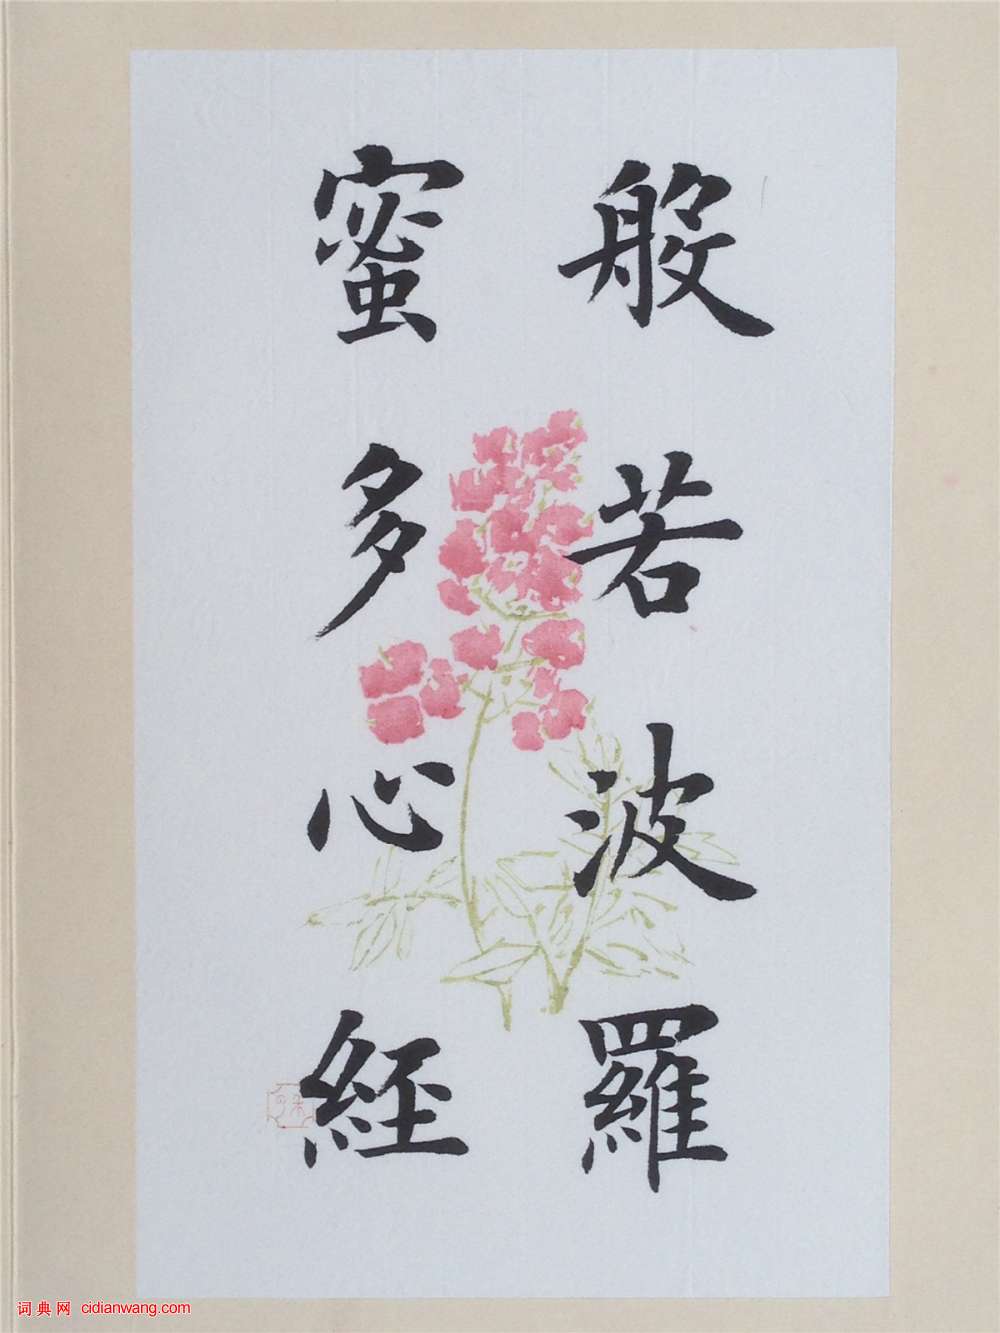 般若波羅
蜜多心経
词典网 cidianwang.com